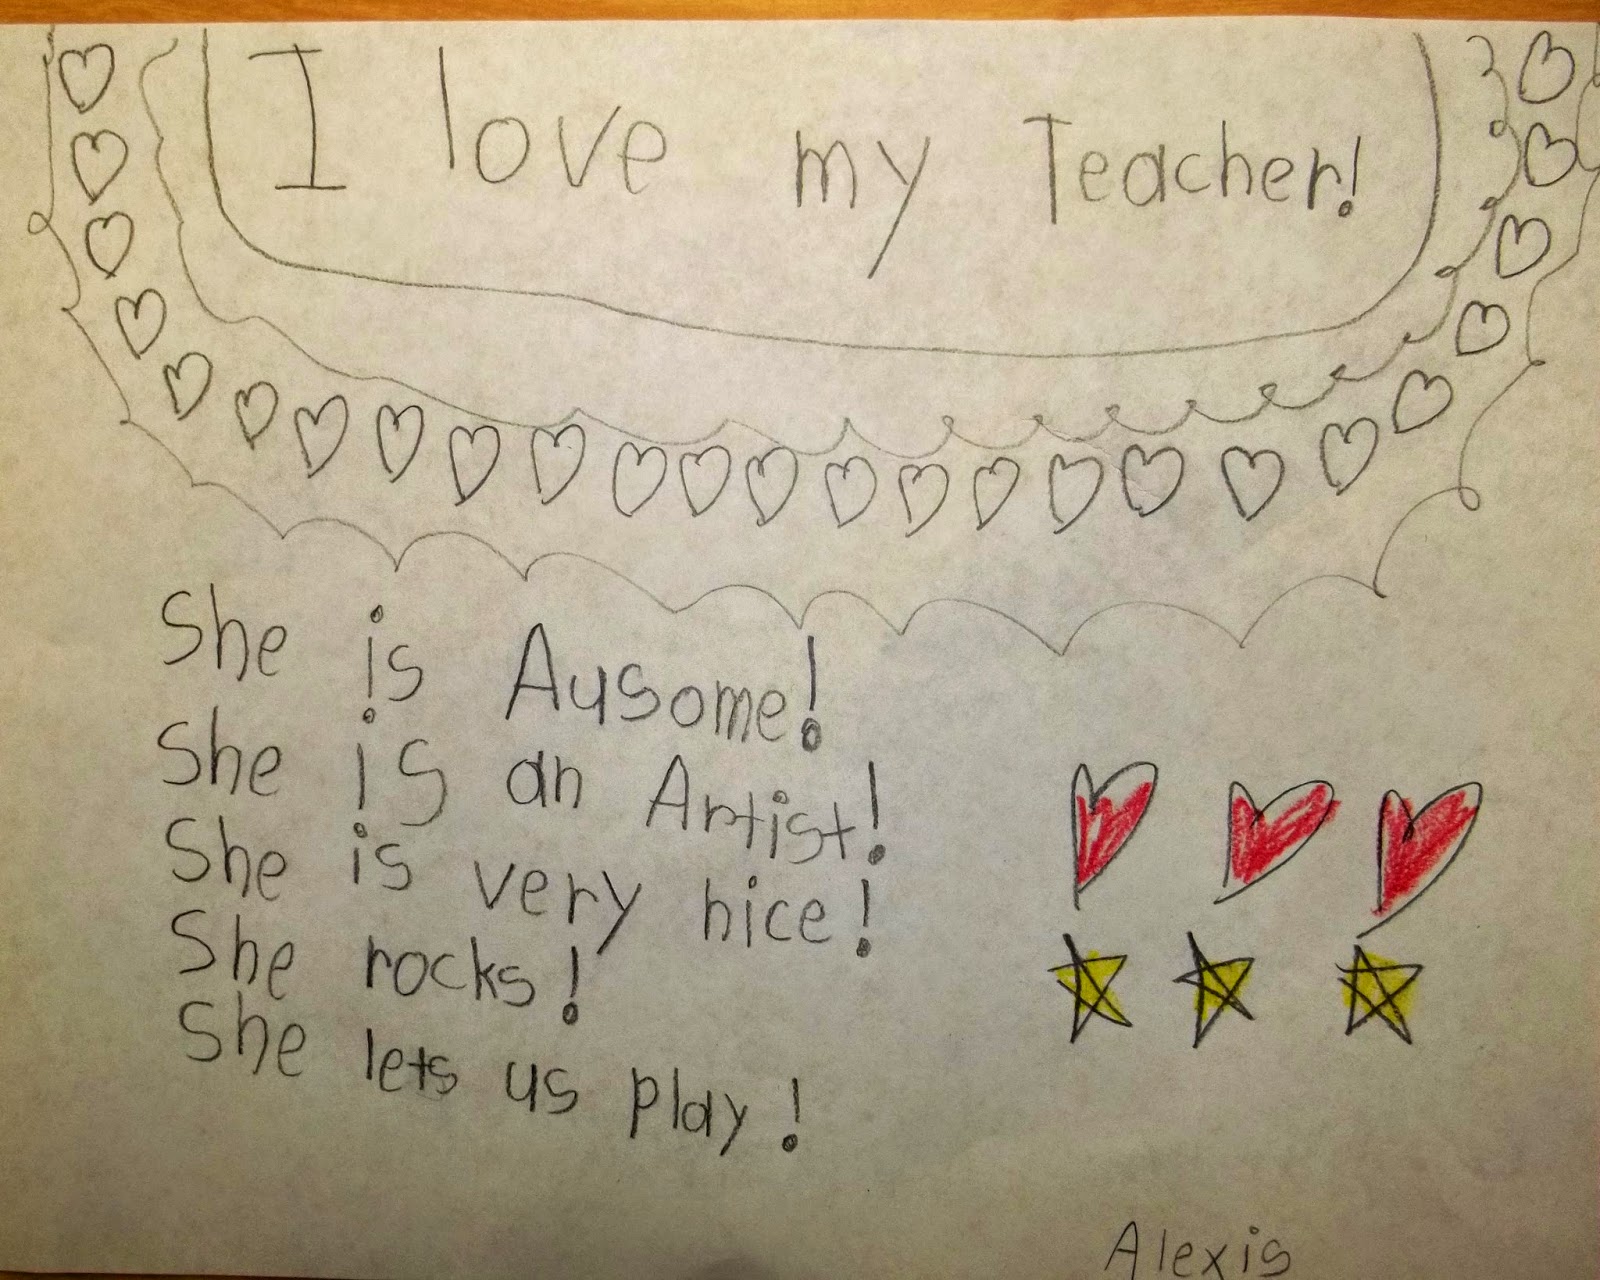 I love my Teacher!
She is Ausome!
She is an Artist!
She is very nice!
She rocks!
She lets us play!
Alexis